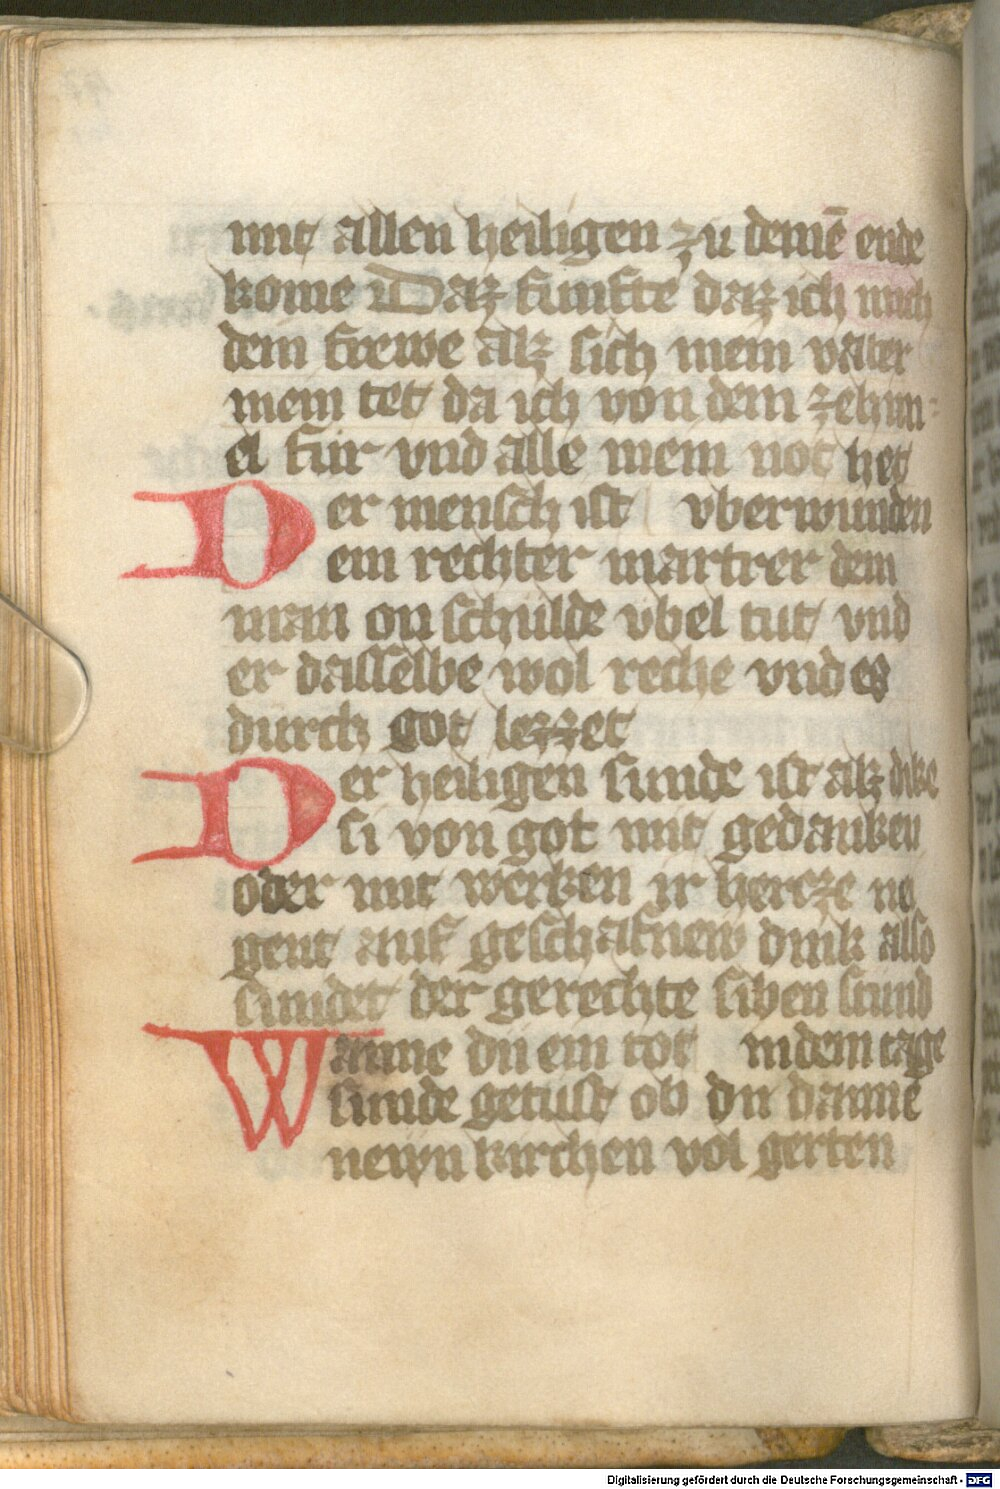 mit allen heiligen zu deinē ende
kome Daz funfte daz ich mich
dein frewe alz sich mein vatter
mein tet da ich von dem zehim¬
el fur vnd alle mein not het
Der mensch ist vberwunden
ein rechter martrer dem
man on schulde vbel tut vnd
er dasselbe wol reche vnd es
durch got lezzet
Der heiligen sunde ist alz dike
si von got mit gedanken
oder mit werken ir hercze nei
gent auf geschafnew dink also
sundet der gerechte siben stund
Wanne du ein tot in dem tage
sunde getust ob du dannē
newn kirchen vol gerten
Digitalisierung gefördert durch die Deutsche Forschungsgemeinschaft - DFG